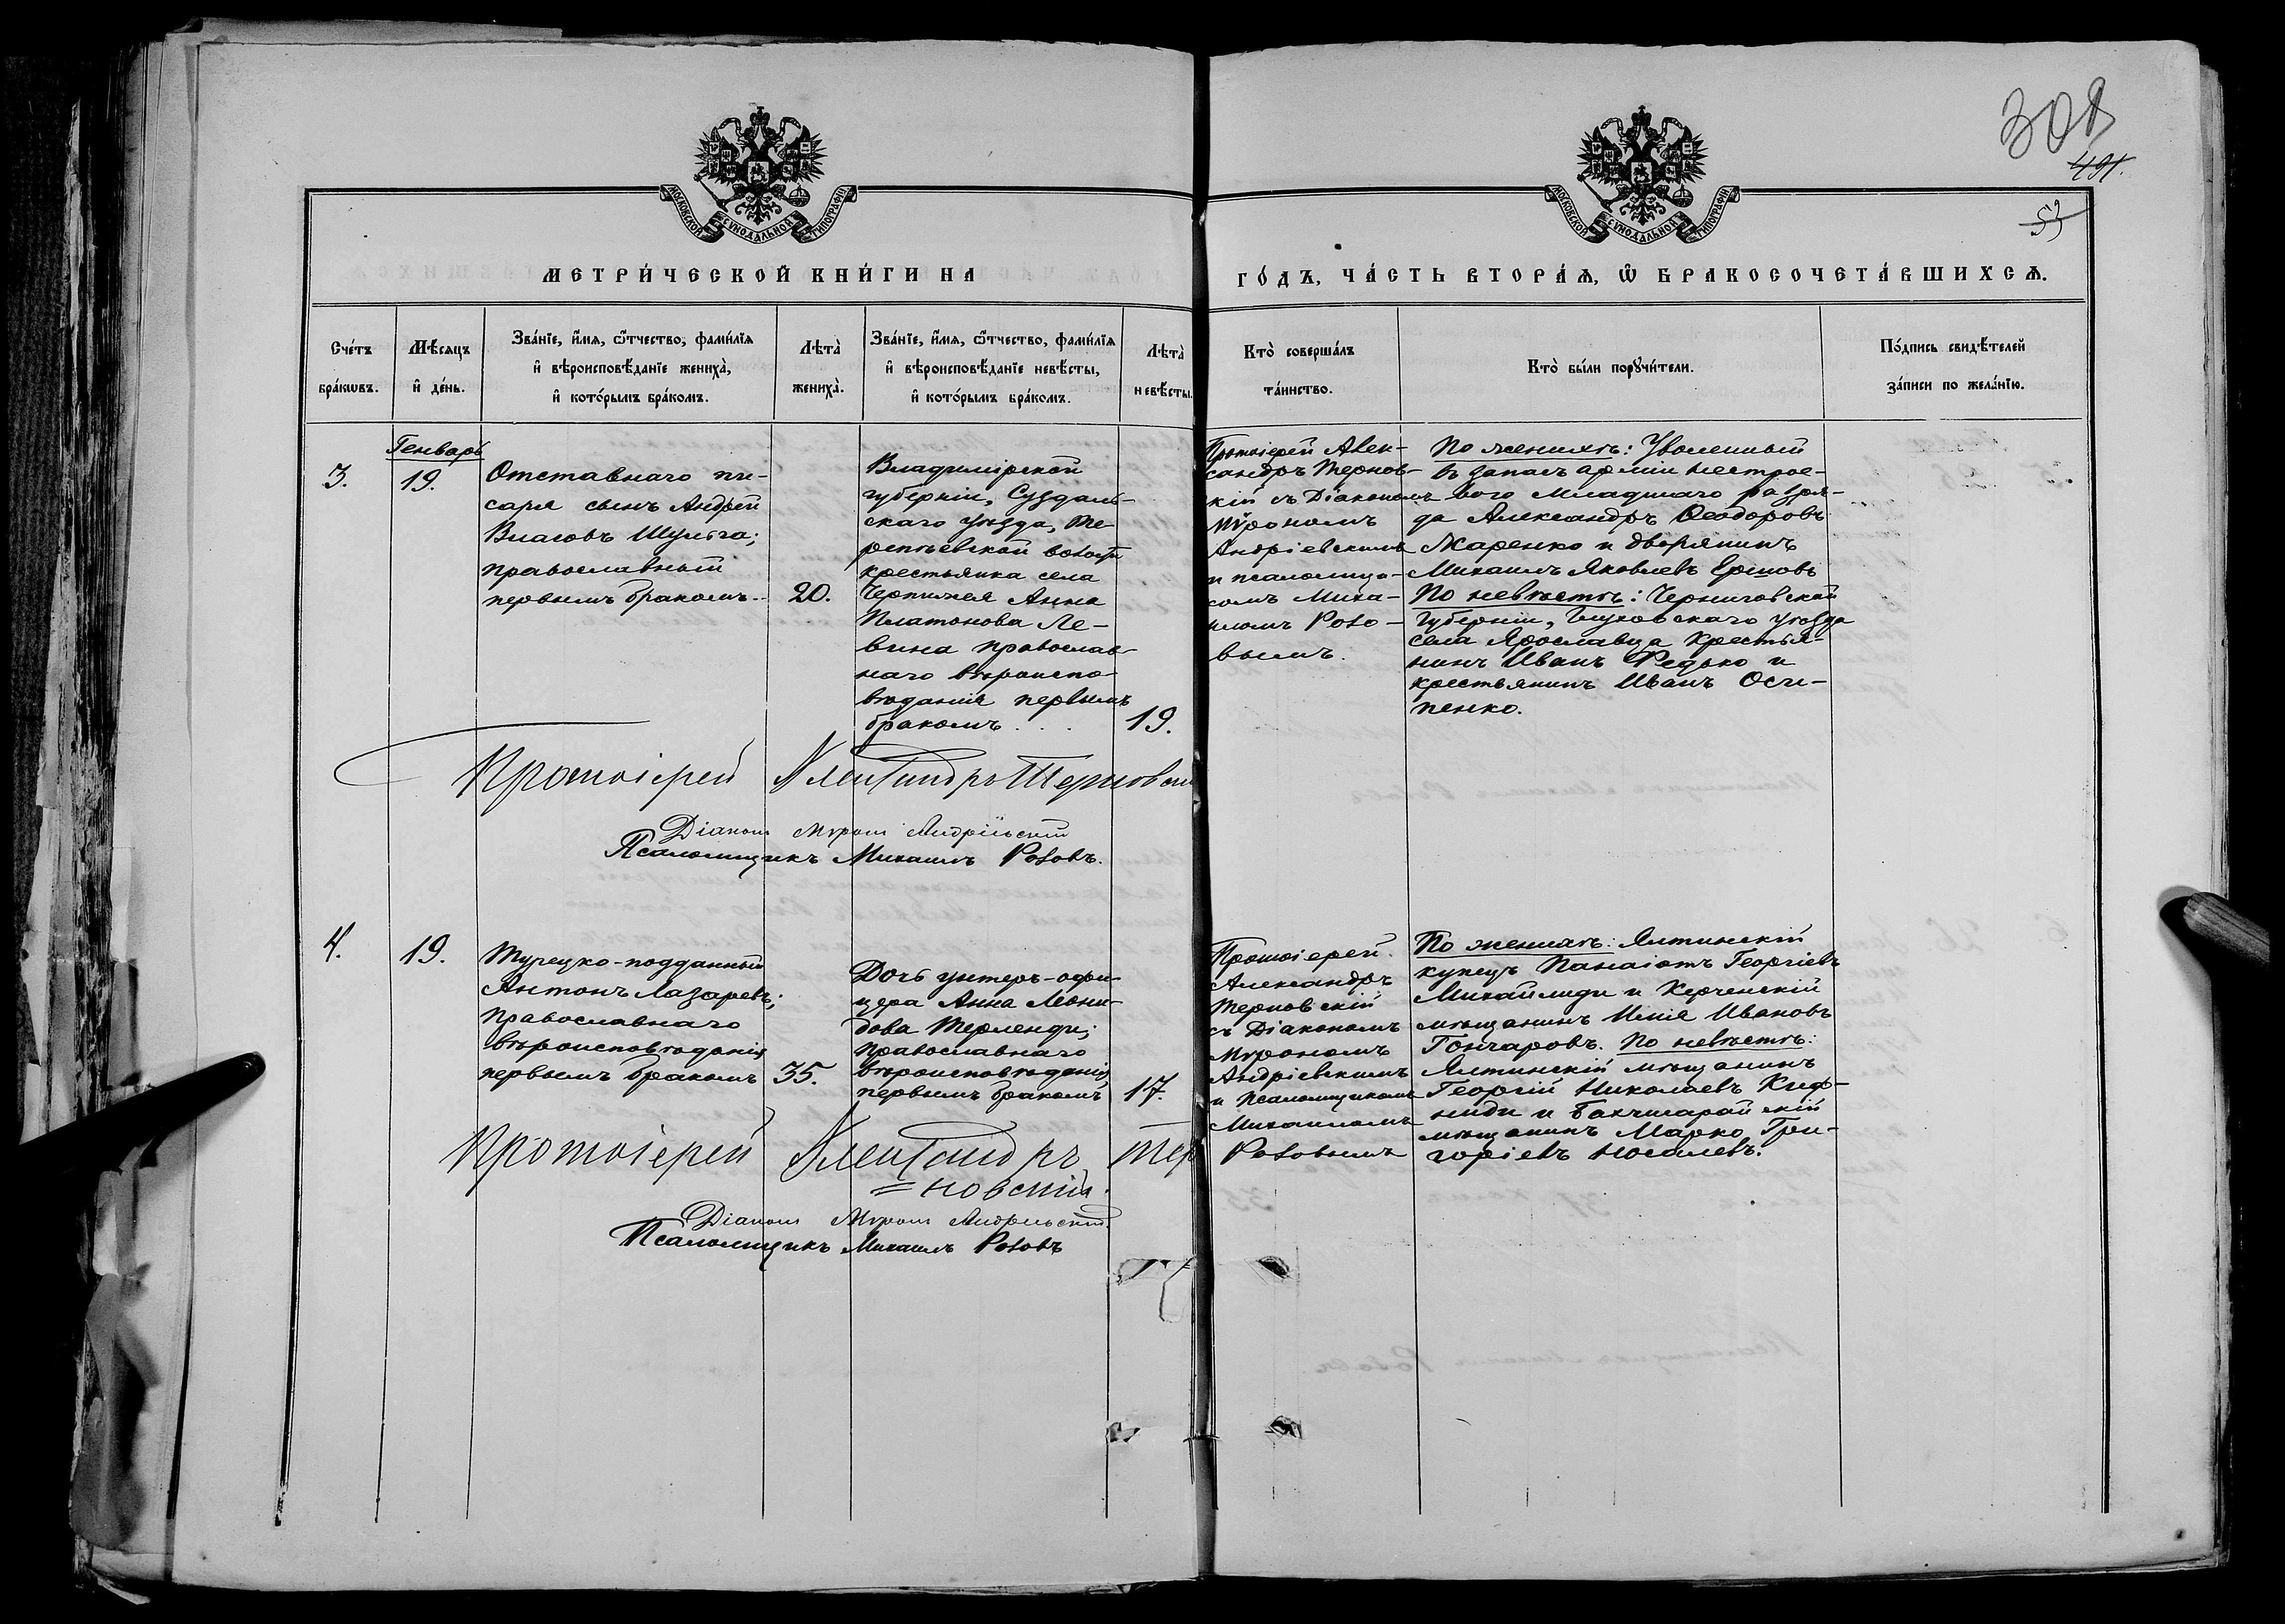 308
491.
53
МОСКОВСКОЙ СУНОДАЛЬНОЙ ТИПОГРАФІИ
МОСКОВСКОЙ СУНОДАЛЬНОЙ ТИПОГРАФІИ
МЕТРИ́ЧЕСКОЙ КНИ́ГИ НА
ГО́ДЪ, ЧА́СТЬ ВТОРА́Ѧ, Ѽ БРАКОСОЧЕТА́ВШИХСѦ.
Сче́тъ
бра́кѡвъ.
Мѣ́сѧцъ
и҆ де́нь.
Зва́нїе, и҆́мѧ, ѻ҆́тчество, фами́лїѧ
и҆ вѣроисповѣ́данїе жениха̀,
и҆ кото́рымъ бра́комъ.
Лѣта̀
жениха̀.
Зва́нїе, и҆́мѧ, ѻ҆́тчество, фами́лїѧ
и҆ вѣроисповѣ́данїе невѣ́сты,
и҆ кото́рымъ бра́комъ.
Лѣта̀
невѣ́сты.
Кто̀ соверша́лъ
та́инство.
Кто̀ бы́ли порꙋчи́тели.
По́дпись свидѣ́телей
за́писи по жела́нїю.
Генварь
3.
19.
Отставнаго пи-
саря сынъ Андрей
Власовъ Шульга;
православный
первымъ бракомъ..
20.
Владимірской
губерніи, Суздаль-
скаго уѣзда, Те
рентьевской волости
крестьянка села
Чернижа Анна
Платонова Ле-
вина православ-
наго вѣроиспо-
вѣданія первымъ
бракомъ . . .
19.
Протоіерей Алек-
сандръ Тернов-
скій съ Діакономъ
Мѵрономъ
Андріевскимъ
и псаломщи-
комъ Миха-
иломъ Розо-
вымъ.
По женихѣ: Уволенный
въ запасъ арміи нестрое-
вого младшаго разря-
да Александръ Ѳеодоровъ
Жаренко и дворянинъ
Михаилъ Яковлевъ Ершовъ
По невѣстѣ: Черниговской
губерніи, Глуховскаго уѣзда
села Ярославца крестья-
нинъ Иванъ Редько и
крестьянинъ Иванъ Оси-
пенко.
Протоіерей Александръ Терновскій
Діаконъ Мѵронъ Андріевскій
Псаломщикъ Михаилъ Розовъ.
4.
19.
Турецко-подданный
Антонъ Лазаревъ;
православнаго
вѣроисповѣданія
первымъ бракомъ
35.
Дочь унтеръ-офи-
цера Анна Леони-
дова Терленди;
православнаго
вѣроисповѣданія
первымъ бракомъ
17.
Протоіерей
Александръ
Терновскій
съ Діакономъ
Мѵрономъ
Андріевскимъ
и псаломщикомъ
Михаиломъ
Розовымъ
По женихѣ: Ялтинскій
купецъ Панаіотъ Георгіевъ
Михайлиди и Керченскій
мѣщанинъ Илія Ивановъ
Гончаровъ. По невѣстѣ:
Ялтинскій мѣщанинъ
Георгій Николаевъ Киф-
ниди и Бахчисарайскій
мѣщанинъ Марко Гри-
горіевъ Ногалевъ.
Протоіерей Александръ Тер
=новскій.
Діаконъ Мѵронъ Андріевскій
Псаломщикъ Михаилъ Розовъ